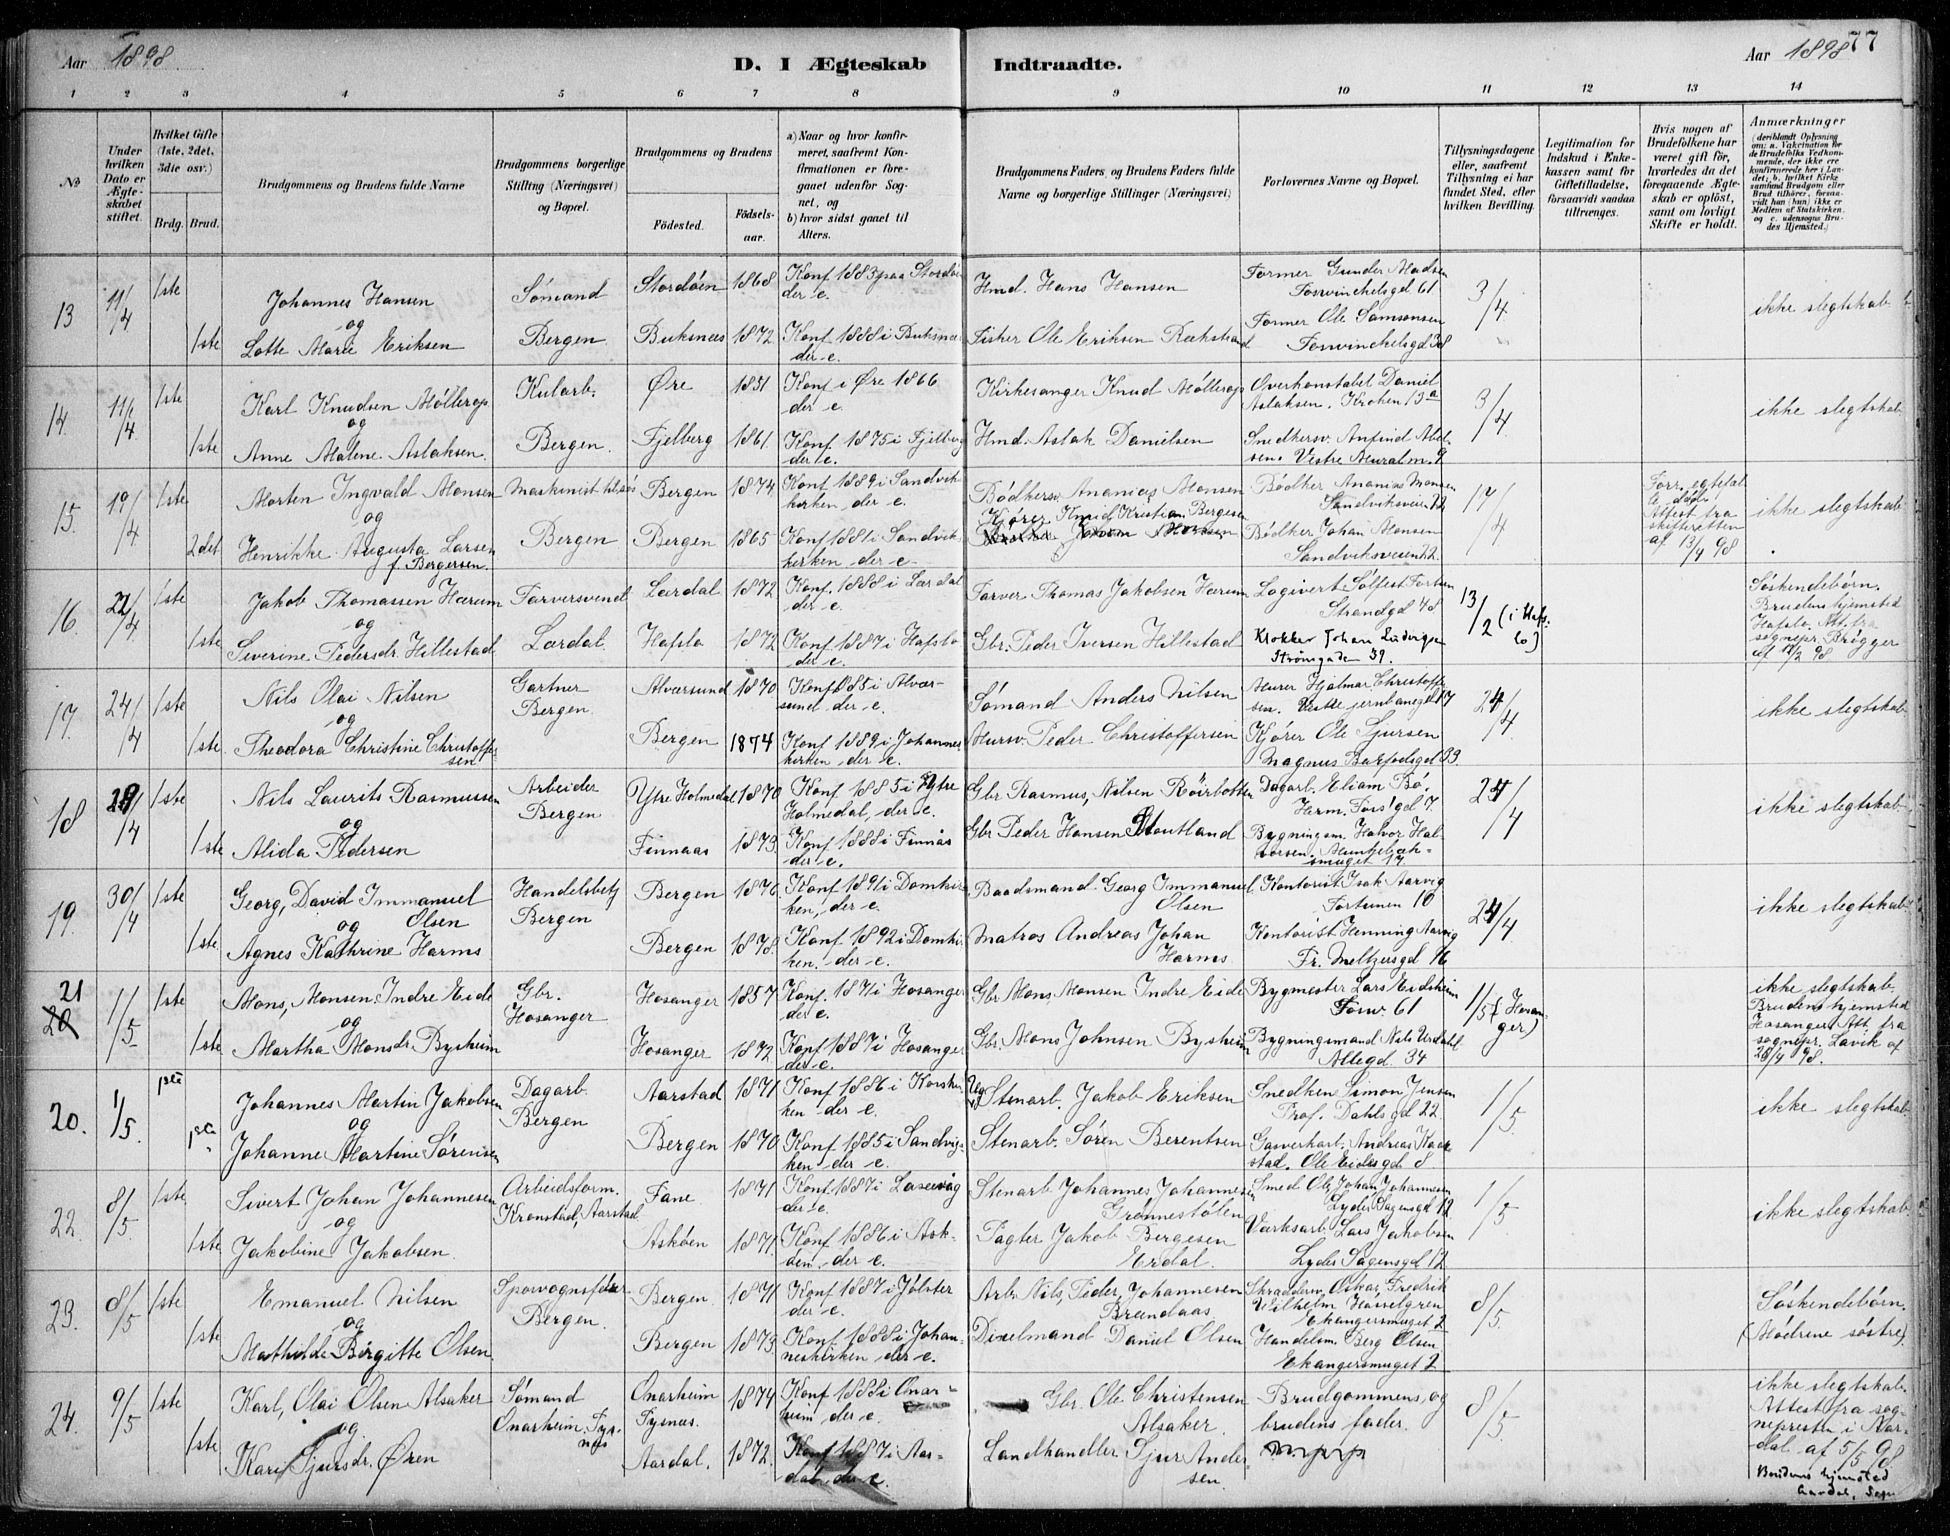 Aar 1898.
D. I Ægteskab Indtraadte.
Aar 1898
77
1 2 3 4 5 6 7 8 9 10 11 12 13 14
No
Under hvilken Dato er Ægteskabet stiftet.
Hvilket Gifte (1ste, 2det, 3die osv.)
Brdg. Brud.
Brudgommens og Brudens fulde Navne
Brudgommens borgerlige Stilling (Næringsvei) og Bopæl.
Brudgommens og Brudens
Fødested.
Fødselsaar.
a) Naar og hvor konfirmeret, saafremt Konfirmationen er foregaaet udenfor Sognet, og
b) hvor sidst gaaet til Alters.
Brudgommens Faders og Brudens Faders fulde Navne og borgerlige Stillinger (Næringsvei)
Forlovernes Navne og Bopæl.
Tillysningsdagene eller, saafremt Tillysning ei har fundet Sted, efter hvilken Bevilling.
Legitimation for Indskud i Enkekassen samt for Giftetilladelse, forsaavidt saadan tiltrænges.
Hvis nogen af Brudefolkene har været gift før, hvorledes da det foregaaende Ægteskab er opløst, samt om lovligt Skifte er holdt.
Anmærkninger (deriblandt Oplysning om: a. Vakcination for de Brudefolks Vedkommende, der ikke ere konfirmerede her i Landet; b. hvilket Kirkesamfund Brudgom eller Brud tilhører, forsaavidt han (hun) ikke er Medlem af Statskirken, og c. udensogns Brudes Hjemsted.)
13 11/4 1ste Johannes Hansen Sømand Stordøen 1868 Konf 1883 paa Stordøen der e. Hmd. Hans Hansen Former Gunder Madsen Forsvinckelsgd 61 3/4 ikke slegtskab
og
1ste Lotte Marie Eriksen Bergen Buksnæs 1872 Konf 1888 i Buksnæs der e. Fisker Ole Eriksen Rækstrand Former Ole Samsonsen Forsvinckelsgd 38
14. 11/4 1ste Karl Knudsen Møllerop Kularb. Øre 1851 Konf i Øre 1866 der e. Kirkesanger Knud Møllerop Overkonstabel Daniel Aslaksen. Kroken 13a 3/4 ikke slegtskab
og
1ste Anne Malene Aslaksen. Bergen. Fjelberg 1861 Konf 1875 i Fjelberg der e. Hmd. Aslak Danielsen Snedkersv. Anfind Abelsen. Vestre Muralm. 9
15. 19/4 1ste Morten Ingvald Monsen Maskinist tilsøs Bergen 1874 Konf 1889 i Sandvikkirken der e. Bødkersv. Ananias Monsen Bødker Ananias Monsen Sandviksveien 72 17/4 Forr. egtefælle død. Attest fra skifteretten af 13/4 98 ikke slegtskab
og
2det Henrikke Augusta Larsen f. Bergersen. Bergen Bergen 1865 Konf 1881 i Sandvikkirken der e. Kjører Knud Kristian Bergesen Bødker Johan Monsen Sandviksveien 72.
16. 22/4 1ste Jakob Thomassen Hærum Farversvend Lærdal 1872 Konf. 1888 i Lærdal der e. Farver Thomas Jakobsen Hærum Logivert Sølfest Fortun Strandgd 48 13/2 (i Hafslo) Søskendebørn. Brudens hjemsted Hafslo. Att. fra sognepr. Brøgger af 17/2 98.
og
1ste Severine Pedersdr. Hillestad Lærdal. Hafslo 1872 Konf 1887 i Hafslo der e. Gbr. Peder Iversen Hillestad Klokker Johan Ludvigsen Strømgaden 39.
17. 24/4 1ste Nils Olai Nilsen Gartner Bergen. Alværsund 1870 Konf 1885 i Alværsund der e. Sømand Anders Nilsen Murer Hjalmar Christoffersen. Vestre jernbanegd 17 24/4 ikke slegtskab
og
1ste Theodora Christine Christoffersen Bergen 1874 Konf 1889 i Johanneskirken der e. Mursv. Peder Christoffersen Kjører Ole Sjursen Magnus Barfodsgd 33.
18 /4 1ste Nils Laurits Rasmussen Arbeider Bergen Ytre Holmedal 1870 Konf 1885 i Ytre Holmedal, der e. Gbr Rasmus Nilsen Røirbotten Dagarb. Eliam Bø. Herm. Fossgd 7 24/4 ikke slegtskab
og
1ste Alida Pedersen Finnaas 1873 Konf 1888 i Finnås der e. Gbr Peder Hansen Stoutland Bygningsm. Halvor Halvorsen. Munkebæksmuget 17
19. 30/4 1ste Georg, David Immanuel Olsen Handelsbetj Bergen Bergen 1876. Konf 1891 i Domkirken, der e. Baadsmand Georg Immanuel Olsen Kontorist Isak Aarvig Fortunen 10 24/4 ikke slegtskab
og
1ste Agnes Kathrine Harms Bergen 1878. Konf 1892 i Domkirken. der e. Matros Andreas Johan Harms Kontorist Henning Aarvig Fr. Meltzersgd 16
21 1/5 1ste Mons, Monsen Indre Eide Gbr. Hosanger Hosanger 1857 Konf. 1871 i Hosanger der e. Gbr. Mons Monsen Indre Eide Bygmester Lars Eidsheim Forsw. 61 1/5 (Hosanger) ikke slegtskab. Brudens hjemsted Hosanger. Att. fra sognepr. Lavik af 28/4 98.
og
1ste Martha Monsdr. Bysheim Hosanger 1872 Konf 1887 i Hosanger der e. Gbr. Mons Johnsen Bysheim Bygningsmand Nils Urdahl Allegd. 34
20. 1/5. 1ste Johannes Martin Jakobsen Dagarb. Bergen Aarstad 1871 Konf 1886 i Korskirken der e. Stenarb. Jakob Eriksen Smedken Simon Jensen Prof. Dahls gd 22 1/5. ikke slegtskab
og
1ste Johanne Martine Sørensen Bergen 1870 Konf 1885 i Sandvigken der e. Stenarb. Søren Berentsen Gasverkarb. Andreas Kaarstad. Ole Eides gd 8
22. 8/5. 1ste Sivert Johan Johannesen Arbeidsform. Kronstad, Aarstad Fane 1871 Konf 1887 i Laxevåg der e. Stenarb Johannes Johannesen Grønnestølen Smed Ole Johan Johannesen Lyder Sagensgd 12 1/5 ikke slegtskab.
og
1ste Jakobine Jakobsen. Askøen 1871. Konf 1886 i Askøen, der e. Pagter Jakob Bergesen Erdal. Værksarb. Lars Jakobsen Lyder Sagensgd 12
23. 8/5 1ste Emanuel Nilsen Sporvognsfører Bergen. Bergen 1871 Konf 1887 i Jølster der e. Arb. Nils, Peder, Johannesen Brændaas Skrædderm. Oskar Fredrik Wilhelm Hasselgren Ekangersmuget 2 8/5. Søskendebørn. (Mødrene søstre)
og
1ste Mathilde Birgitte Olsen. Bergen 1873. Konf 1888 i Johanneskirken der e. Dixelmand Daniel Olsen Handelsm. Berg Olsen Ekangersmuget 2
24. 9/5 1ste Karl, Olai Olsen Alsaker Sømand Onarheim. Tysnæs Onarheim Tysnæs. 1874 Konf 1888 i Onarheim der e. Gbr. Ole Christensen Alsaker. Brudgommens og brudens fader. 8/5. ikke slegtskab. Attest fra sognepresten i Aardal af 5/5 98
og
1ste Kari Sjursdr. Øren Aardal. 1872. Konf 1887 i Aardal der e. Landhandler Sjur Andersen. Brudens hjemsted Aardal, Sogn